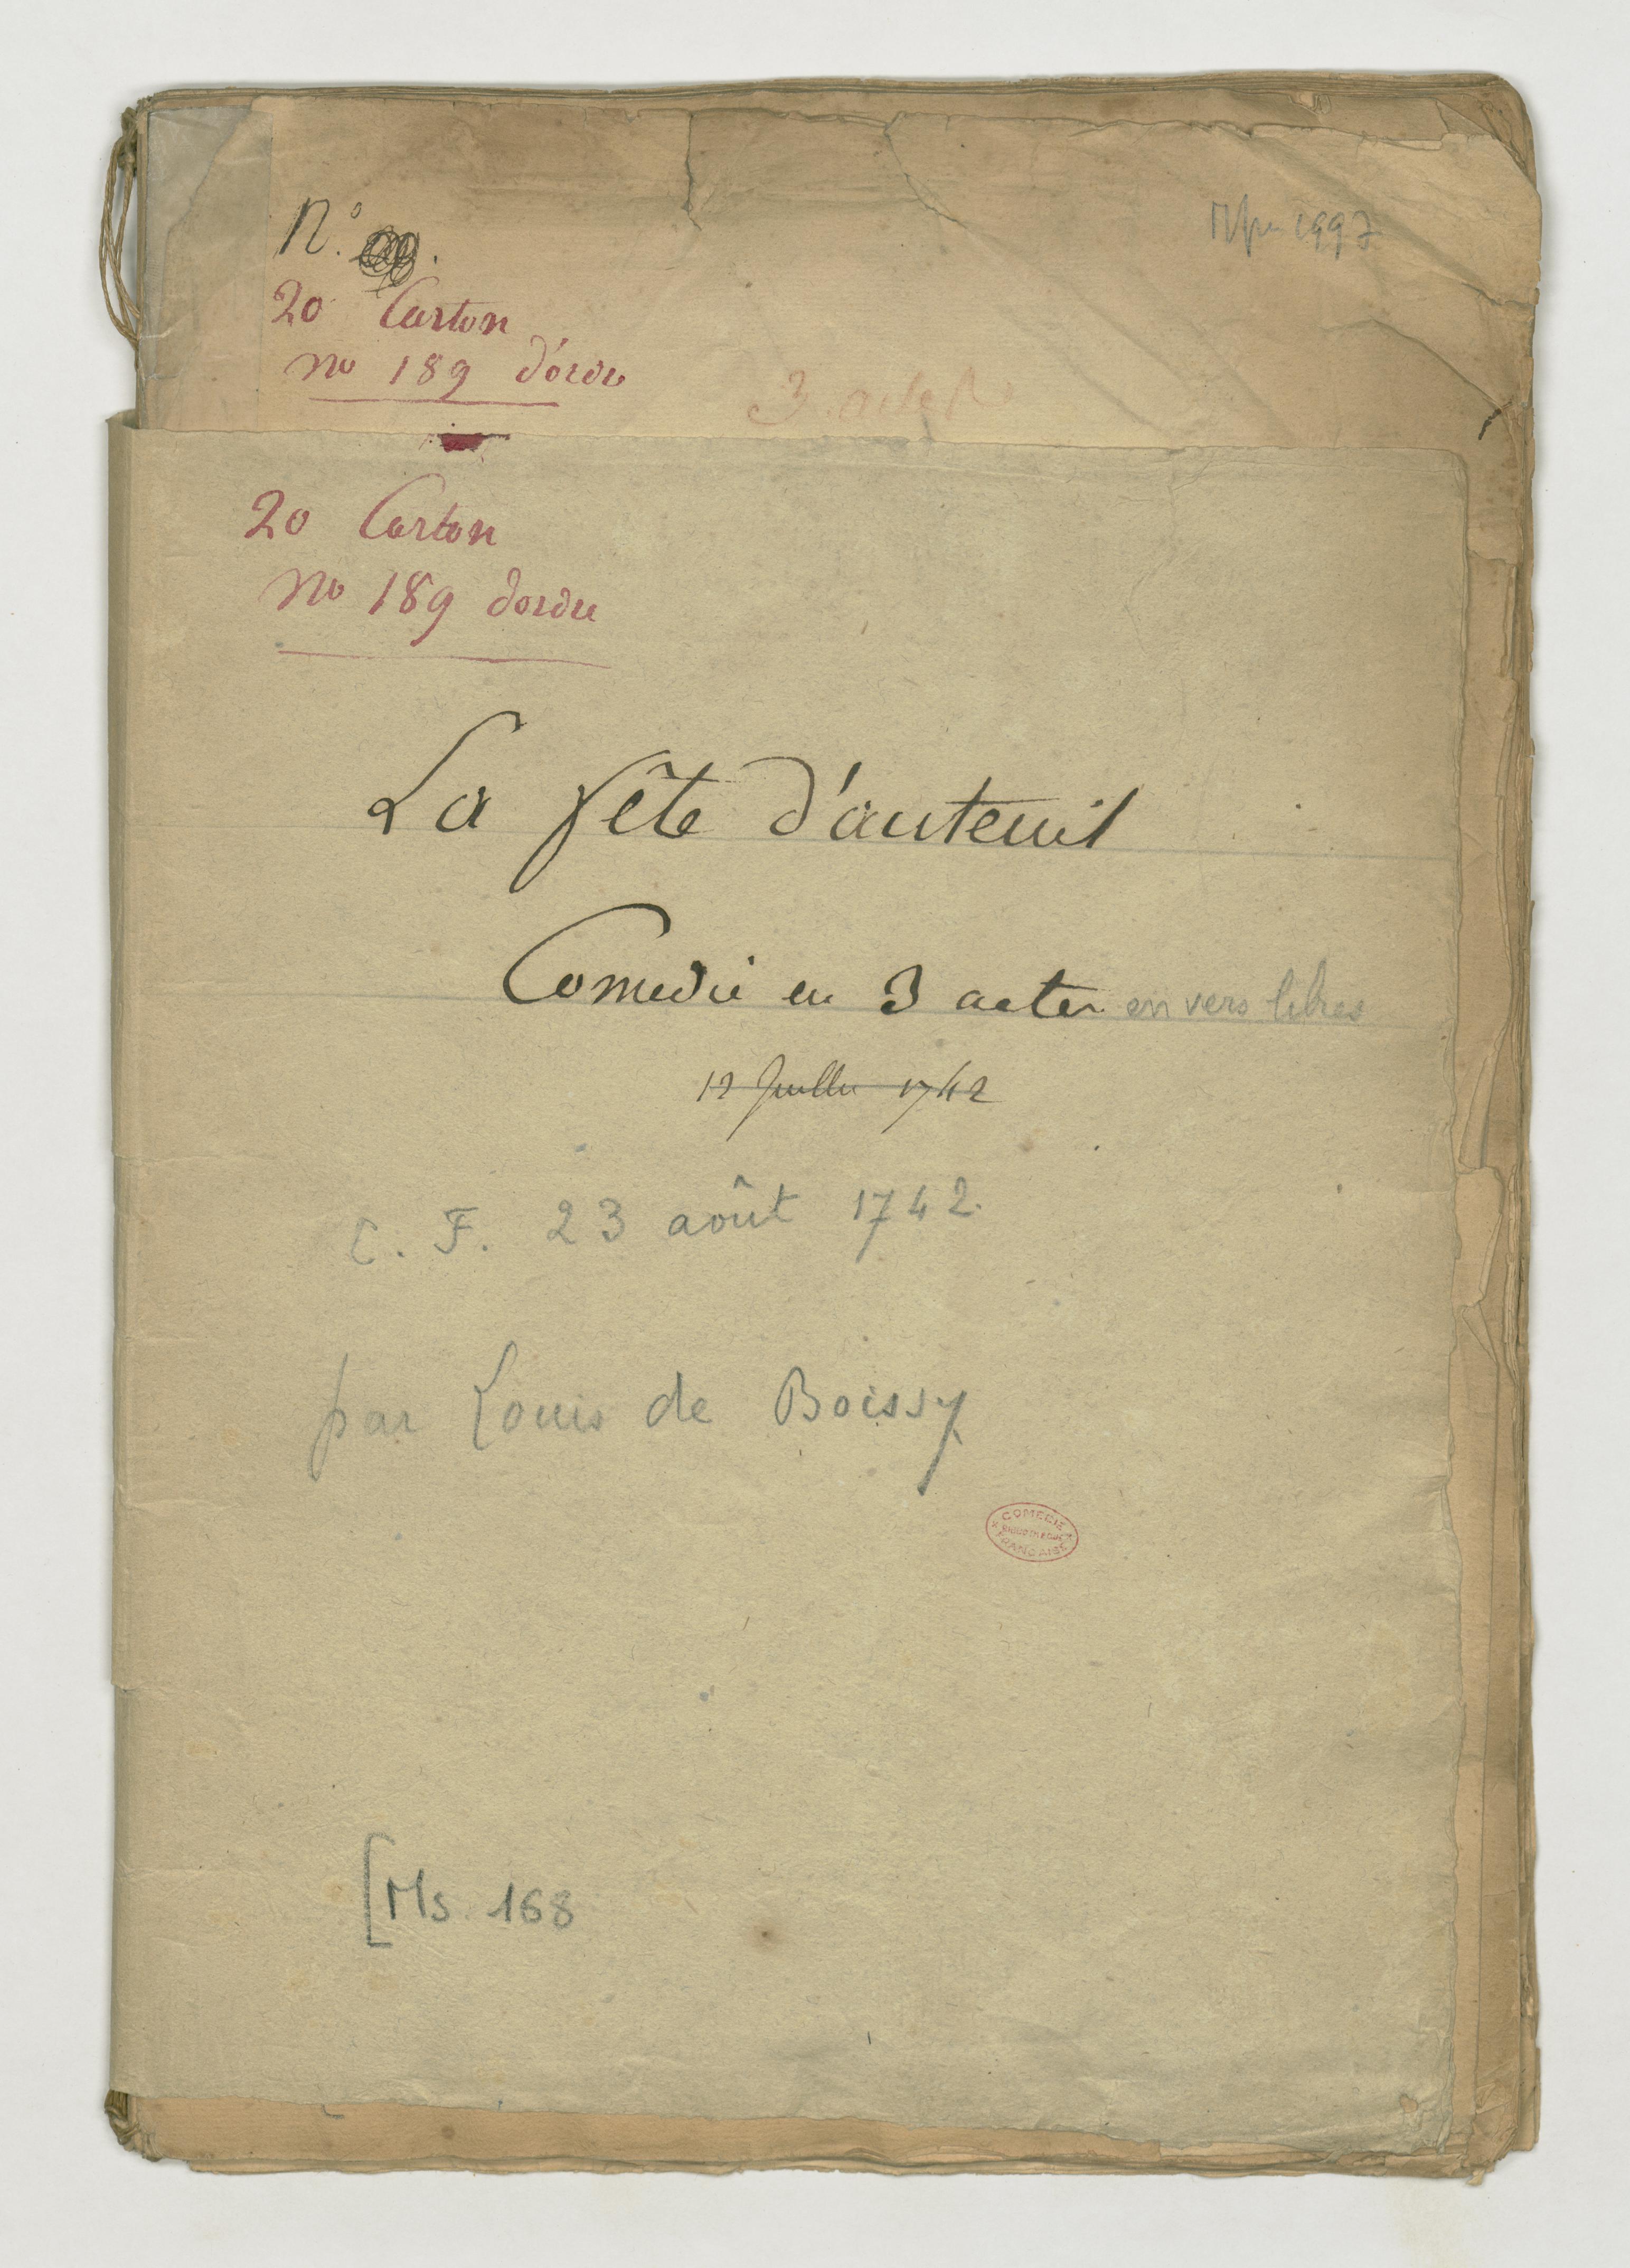 N°.
1997
20 Carton
no 189 d'ordre
3 actes
20 Carton
no 189 dordre
La fête d'auteuil
Comedie en 3 actes en vers libres
12 Juillet 1742
C. F. 23 août 1742.
par Louis de Boissy
COMEDIE
BIBLIOTHEQUE
FRANCAISE
[Ms 168